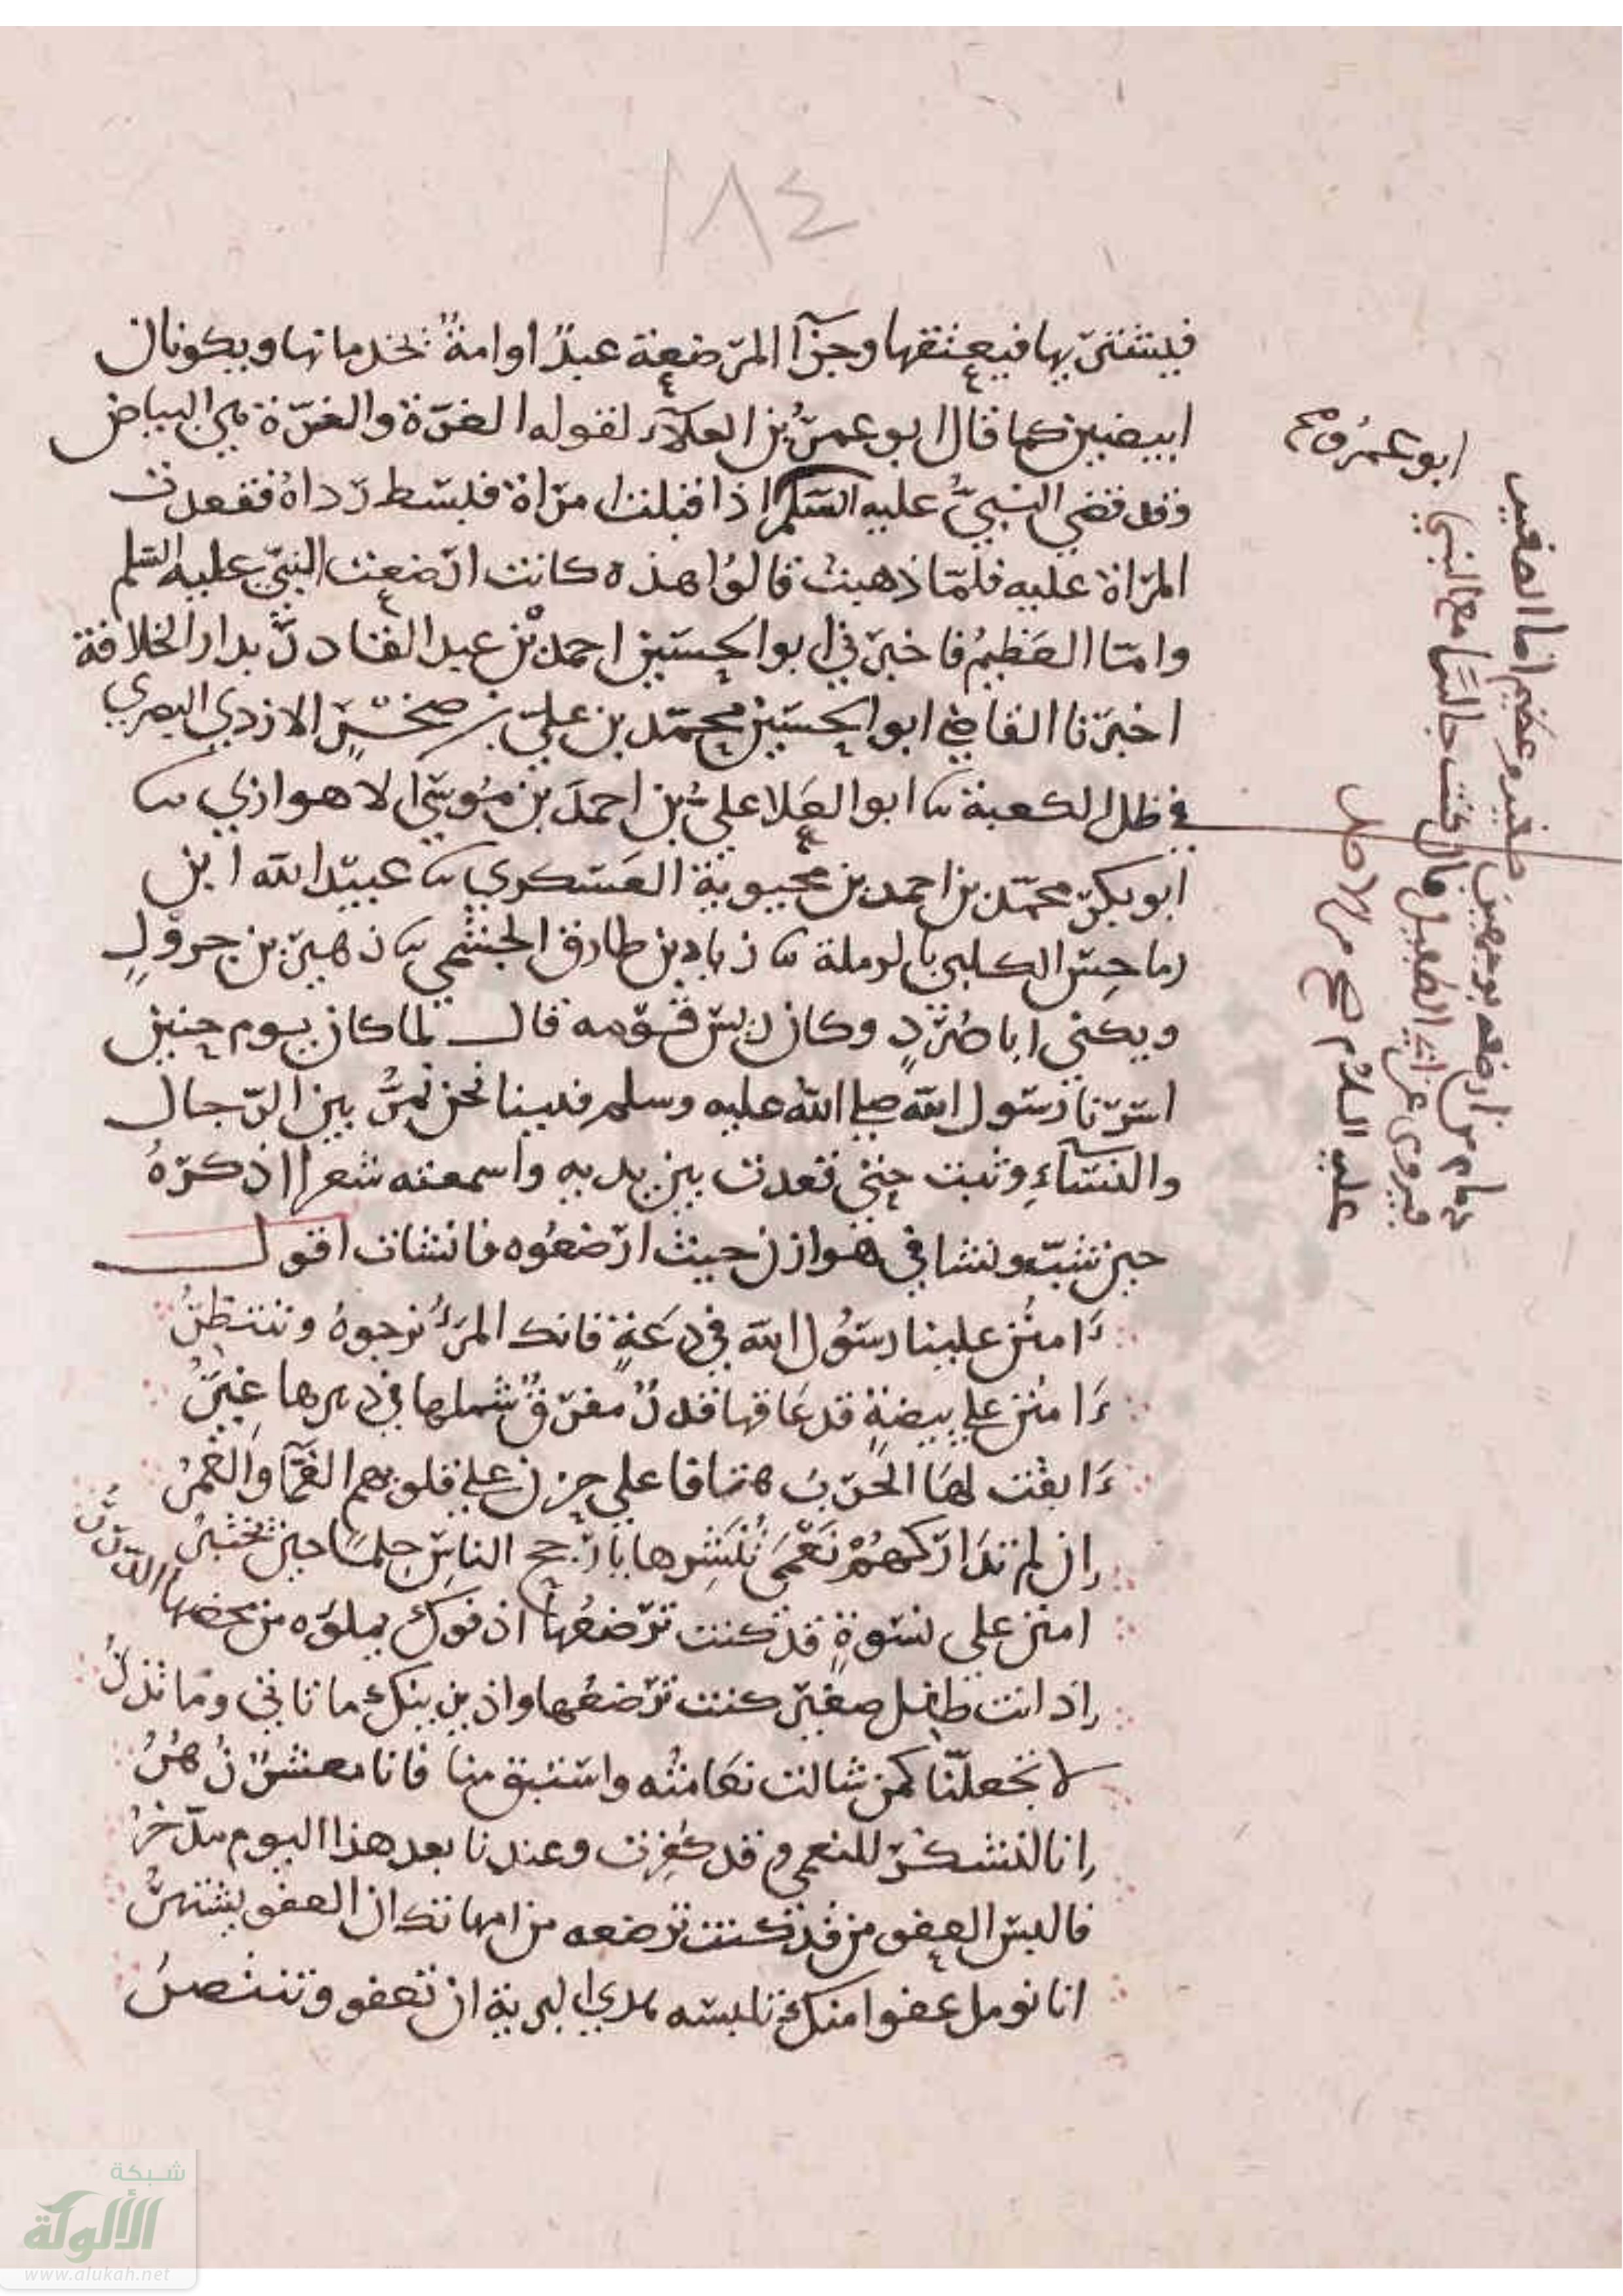 ١٨٤
فيشتريها فيعتقها وجزآ المرضعة عبدٌ او امةٌ تخدمانها ويكونان
ابيضين كما قال ابو عمرُ بن العلآء لقوله الغرّة والغرّة هي البياض
وقد قضي النبيُّ عليه السلم اذ اقبلت امراة فبسط رداهُ فقعدت
المراة عليه فلمّا ذهبت قالوا هذه كانت ارضعت النبيّ عليه السلم
وامّا العظيمُ فاخبرني ابو الحسين احمد بن عبد القادر بدار الخلافة
اخبرنا القاضي ابو الحسين محمّد بن عليّ بن صخرٍ الازدي البصري
في ظل الكعبة نا ابو العلا عليُّ بن احمدَ بن مُوسَى الاهوازي نا
ابو بكر محمّد بن احمد بن محبوية العسكري نا عبيد الله ابن
رماحس الكلبي بالرملة نا زياد بن طارق الجشمي نا زهير بن جرولٍ
ويكنى ابا صُرَدٍ وكان رييس قومه قال لما كان يوم حنين
اسرنا رسول الله صلى الله عليه وسلم فبينا نحن نمرُّ بين الرجال
والنسآءِ وثبت حتى قعدت بين يديه واسمعته شعرا اذكرهُ
حين شبّ ونشا في هوازن حيث ارضعُوه فانشات اقول
ءَامنُن علينا رسُول الله في دعةٍ فانك المرءُ نرجوهُ وننتظرُ
ءَامنُن علي بيضةٍ قد عَاقها قدرٌ مفرّقٌ شملها في دهرها غِيَرُ
ءَابقت لهَا الحربُ هتافا علي حزن علي قلوبهم الغمّآ والغمرُ
ان لم تدَاركهُمْ نَعْمَى تُنشِرها يا ارجح الناس حِلمًا حين تختبرُ
امنن علي نسوةٍ قد كنت ترضعُها اذ فوك يملوَه من محضها الدررُ
اذ انت طفل صغير كنت ترضعُها واذ يزينك ما تاتي وما تذرُ
لا تجعلنّا كمن شالت نعَامتُه واستبق منا فانا معشرٌ زُهُرُ
انا لنشكرُ للنعمي وقد كفِرت وعندنا بعد هذا اليوم مدّخرُ
فالبس العفو من قد كنت ترضعه من امهاتك ان العفو يشتهرُ
انا نومل عفوا منك تلبسه هدي البرية ان تعفو وتنتصرُ
ابو عمرو صح